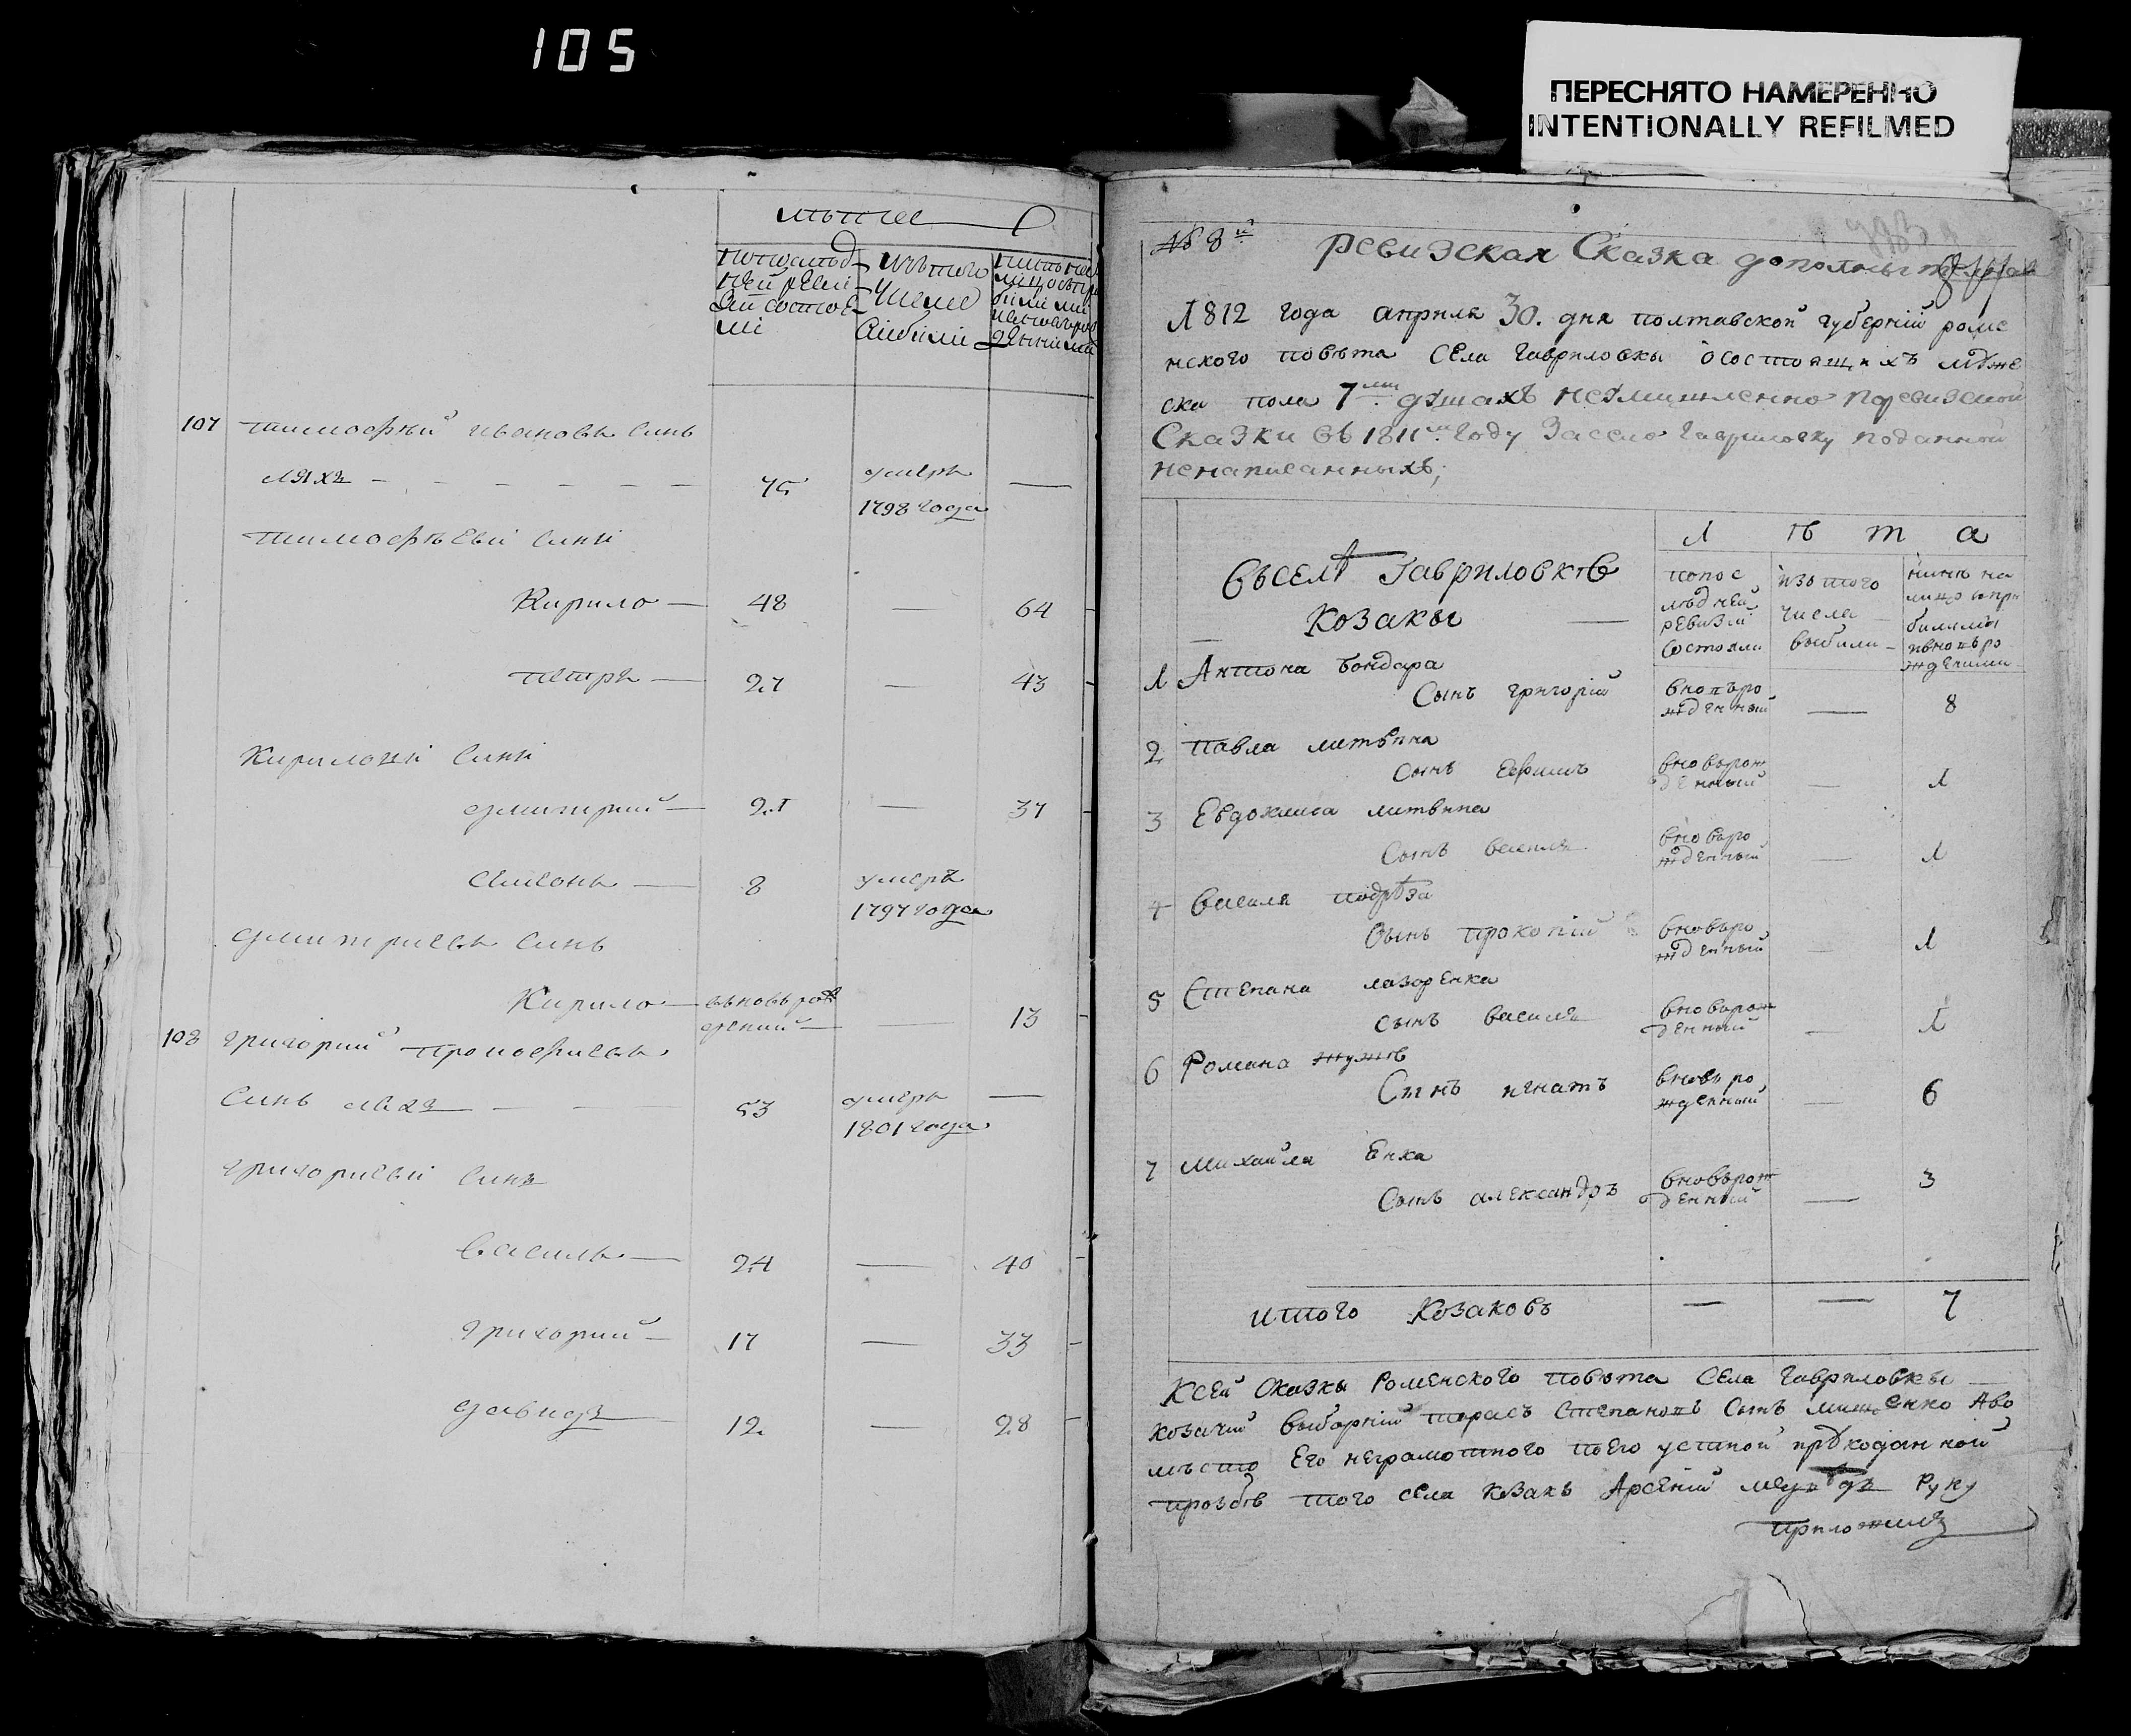 105
ПЕРЕСНЯТО НАМЕРЕННО
INTENTIONALLY REFILMED
107 тимофѣй ивановъ синъ
ляхъ - - - - - - 75 умеръ —
1798 года
тимофѣеви сини
Кирило — 48 — 64
петръ — 27 — 43
Кирилови сини
дмитрий — 21 — 37
семенъ — 8 умеръ
1797 года
дмитриевъ синъ
Кирило — вьновь рож
дений — — 13
108 григорий
синъ ляхъ — — 53 умеръ —
1801 года
григориеви сини
василь — 24 — 40
григорий — 17 — 33
давидъ — 12 — 28
№ 8й Ревизская Сказка
1812 года априля 30. дня полтавской губернїй роме
нского повѣта села гавриловки о состоящихъ мꙋже
ска пола 7ми дꙋшахъ неꙋмишленно по ревизской
Сказки въ 1811м году за село гавриловку поданной
ненаписанныхъ;
Л ѣ т а
Въ селѣ Гавриловкѣ
Козаки —
по пос
лѣдней
ревизїй
состояли
изъ того
числа
выбили
нинѣ на
лицо съ при
билими
и вновь ро
жденими
1 Антона бондара
Сынъ григорїй вновъ ро
жденный — 8
2 Павла литвина
сынъ Ефимъ вновь рож
денный — 1
3 Евдокима литвина
Сынъ василя вновь ро
жденный — 1
4 Василя подрѣза
Сынъ прокопїй вновь ро
жденный — 1
5 Степана лазоренка
сынъ василя вновь рож
денный — 1
6 Романа
Сынъ игнатъ вновь ро
жденный — 6
7 Михайла Енка
Сынъ александръ вновь рож
денный — 3
итого Козаковъ — — 7
К сей Сказки Роменского повѣта Села гавриловки —
козачий выборнїй тарасъ Степановъ сынъ а во
мѣсто его неграмотного по его устной
прозбѣ того села козакъ Арсенїй Руку
приложилъ